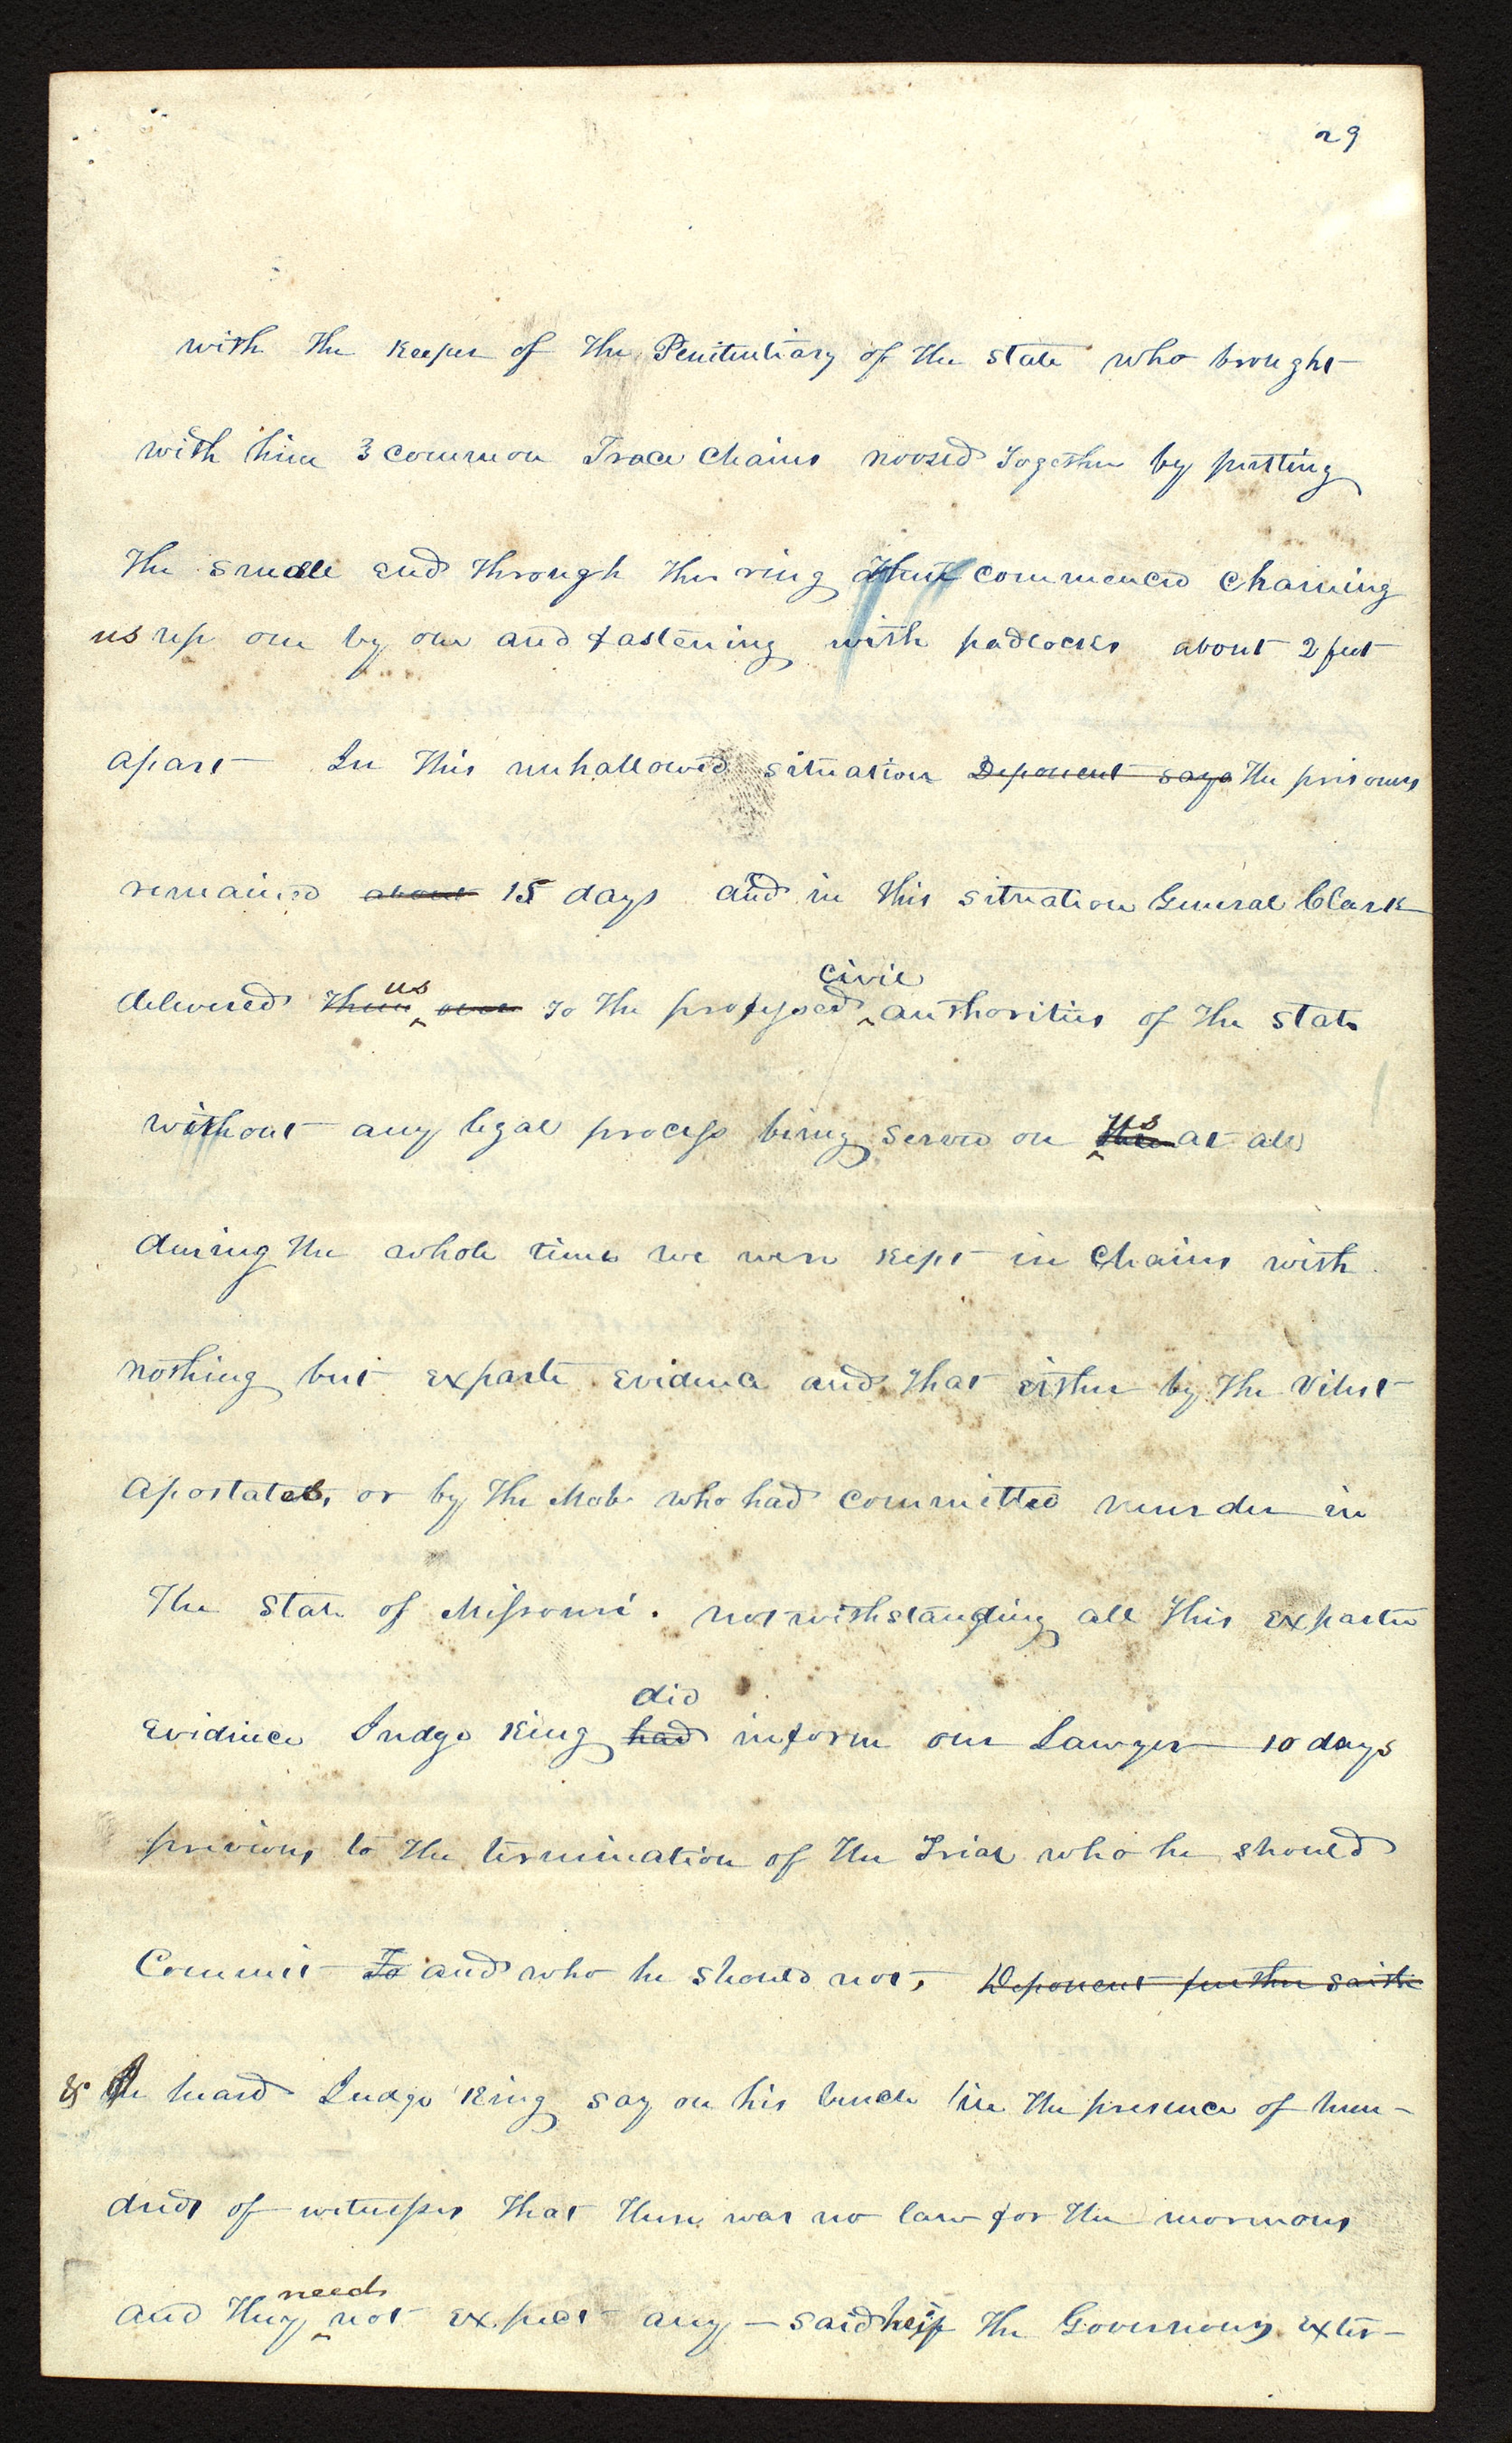 29
with the keeper of the Penitentiary of the state who brought
with him 3 common Trace Chains noozed together by putting
the small end through the ring commenced chaining
us up one by one and fastening with padlocks about 2 feet
apart In this unhallowed situation Deponent says the prisoners
remained about 15 days and in this situation General Clark
delivered them us over to the professed civil authorities of the state
without any legal process being served on us at all
during the whole time we were kept in Chains with
nothing but exparte evidence and that either by the vilest
apostates, or by the Mob who had committed murder in
the state of Missouri. notwithstanding all this exparte
evidence Judge King had did inform our Lawyer 10 days
previous to the termination of the Trial who he should
Commit To and who he should not, Deponent further saith
& I heard Judge King say on his bench in the presence of hun-
dreds of witnesses that there was no law for the mormons
and they need not expect any — said he if the Governors exter-